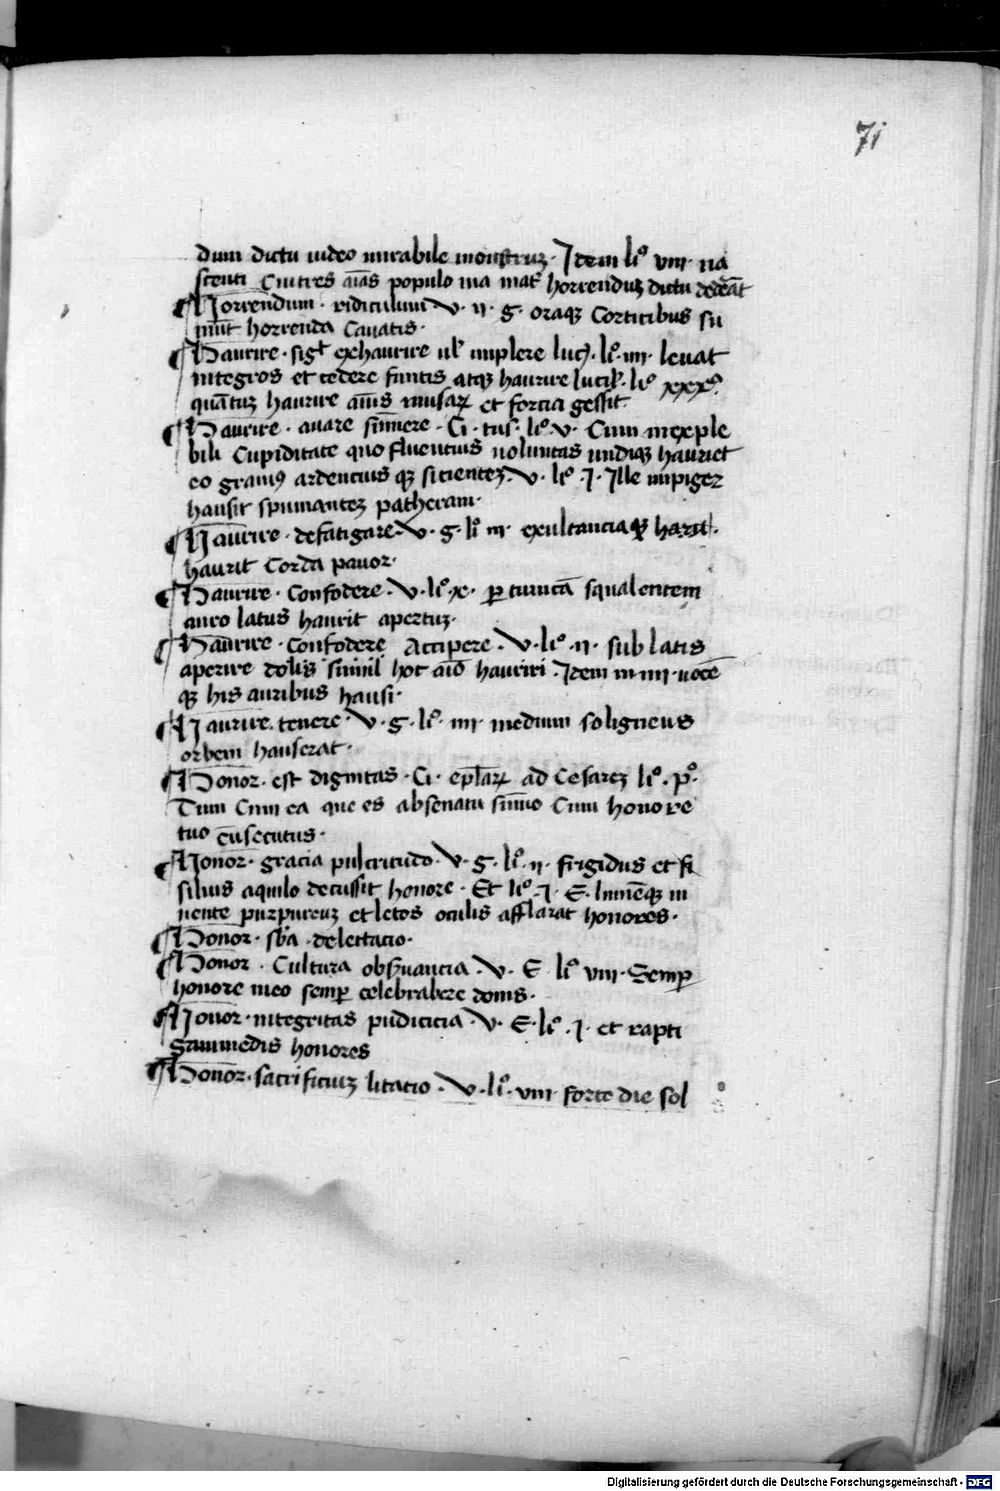 71
dum dictu video mirabile monstruȝ · Idem li° viii · na
scenti Cui tres aīas populo ma mat͛ horrenduȝ dictu dederāt
¶ Horrendum · ridiculum V · ii · g · oraqȝ Corticibus su
mūt horrenda Cavatis ·
¶ Haurire · sigt̄ exhaurire ul̓ implere luc̓ · li° · iiii · levat
integros et cedere funtis atqȝ haurire lucil̓ · li° xxx°·
quātuȝ haurire aīus musaꝝ et fortia gessit
¶ Haurire · avare sūmere · Ci · tus · li° · v · Cum inexple
bili Cupiditate quo fluencius voluntas undiqȝ hauriet
eo graviꝰ ardencius qȝ sicienteȝ · V · li° · I · Ille impiger
hausit spumanteȝ patheram ·
¶ Haurire · defatigare · V · g · li° iii · exultanciaqȝ
haurit Corda pavor ·
¶ Haurire · Confodere · V · li° · x · ꝑ tunicā squalentem
auro latus haurit apertuȝ ·
¶ Haurire · Confodere Accipere · V · li° · ii · sublatis
aperire dolis simul hoc aīo hauriri · Idem in iiii · vocē
qȝ his auribus hausi ·
¶ Haurire · tenere · V · g · li° · iiii · medium sol igneus
orbem hauserat ·
¶ Honor · est dignitas · Ci · epl̄aꝝ ad Cesareȝ li° · p° ·
Tum Cum ea que es absenatu sūmo Cum honore
tuo cūsecutus ·
¶ Honor · gracia pulcritudo · V · g · li° · ii · frigidus et si
silvis aquilo decussit honore · Et li° · I · E · lumēqȝ iu
vente purpureuȝ et letos oculis afflarat honores ·
¶ Honor · sb̄a · delectacio ·
¶ Honor · Cultura obs̓vancia · V · E · li° viii · Semꝑ
honore meo semꝑ celebrabere donis ·
¶ Honor · integritas pudicicia · V · E · li° · I · et rapti
Ganimedis honores
¶ Honor · sacrificiuȝ litacio · V · li° · viii · forte die sol
Digitalisierung gefördert durch die Deutsche Forschungsgemeinschaft - DFG